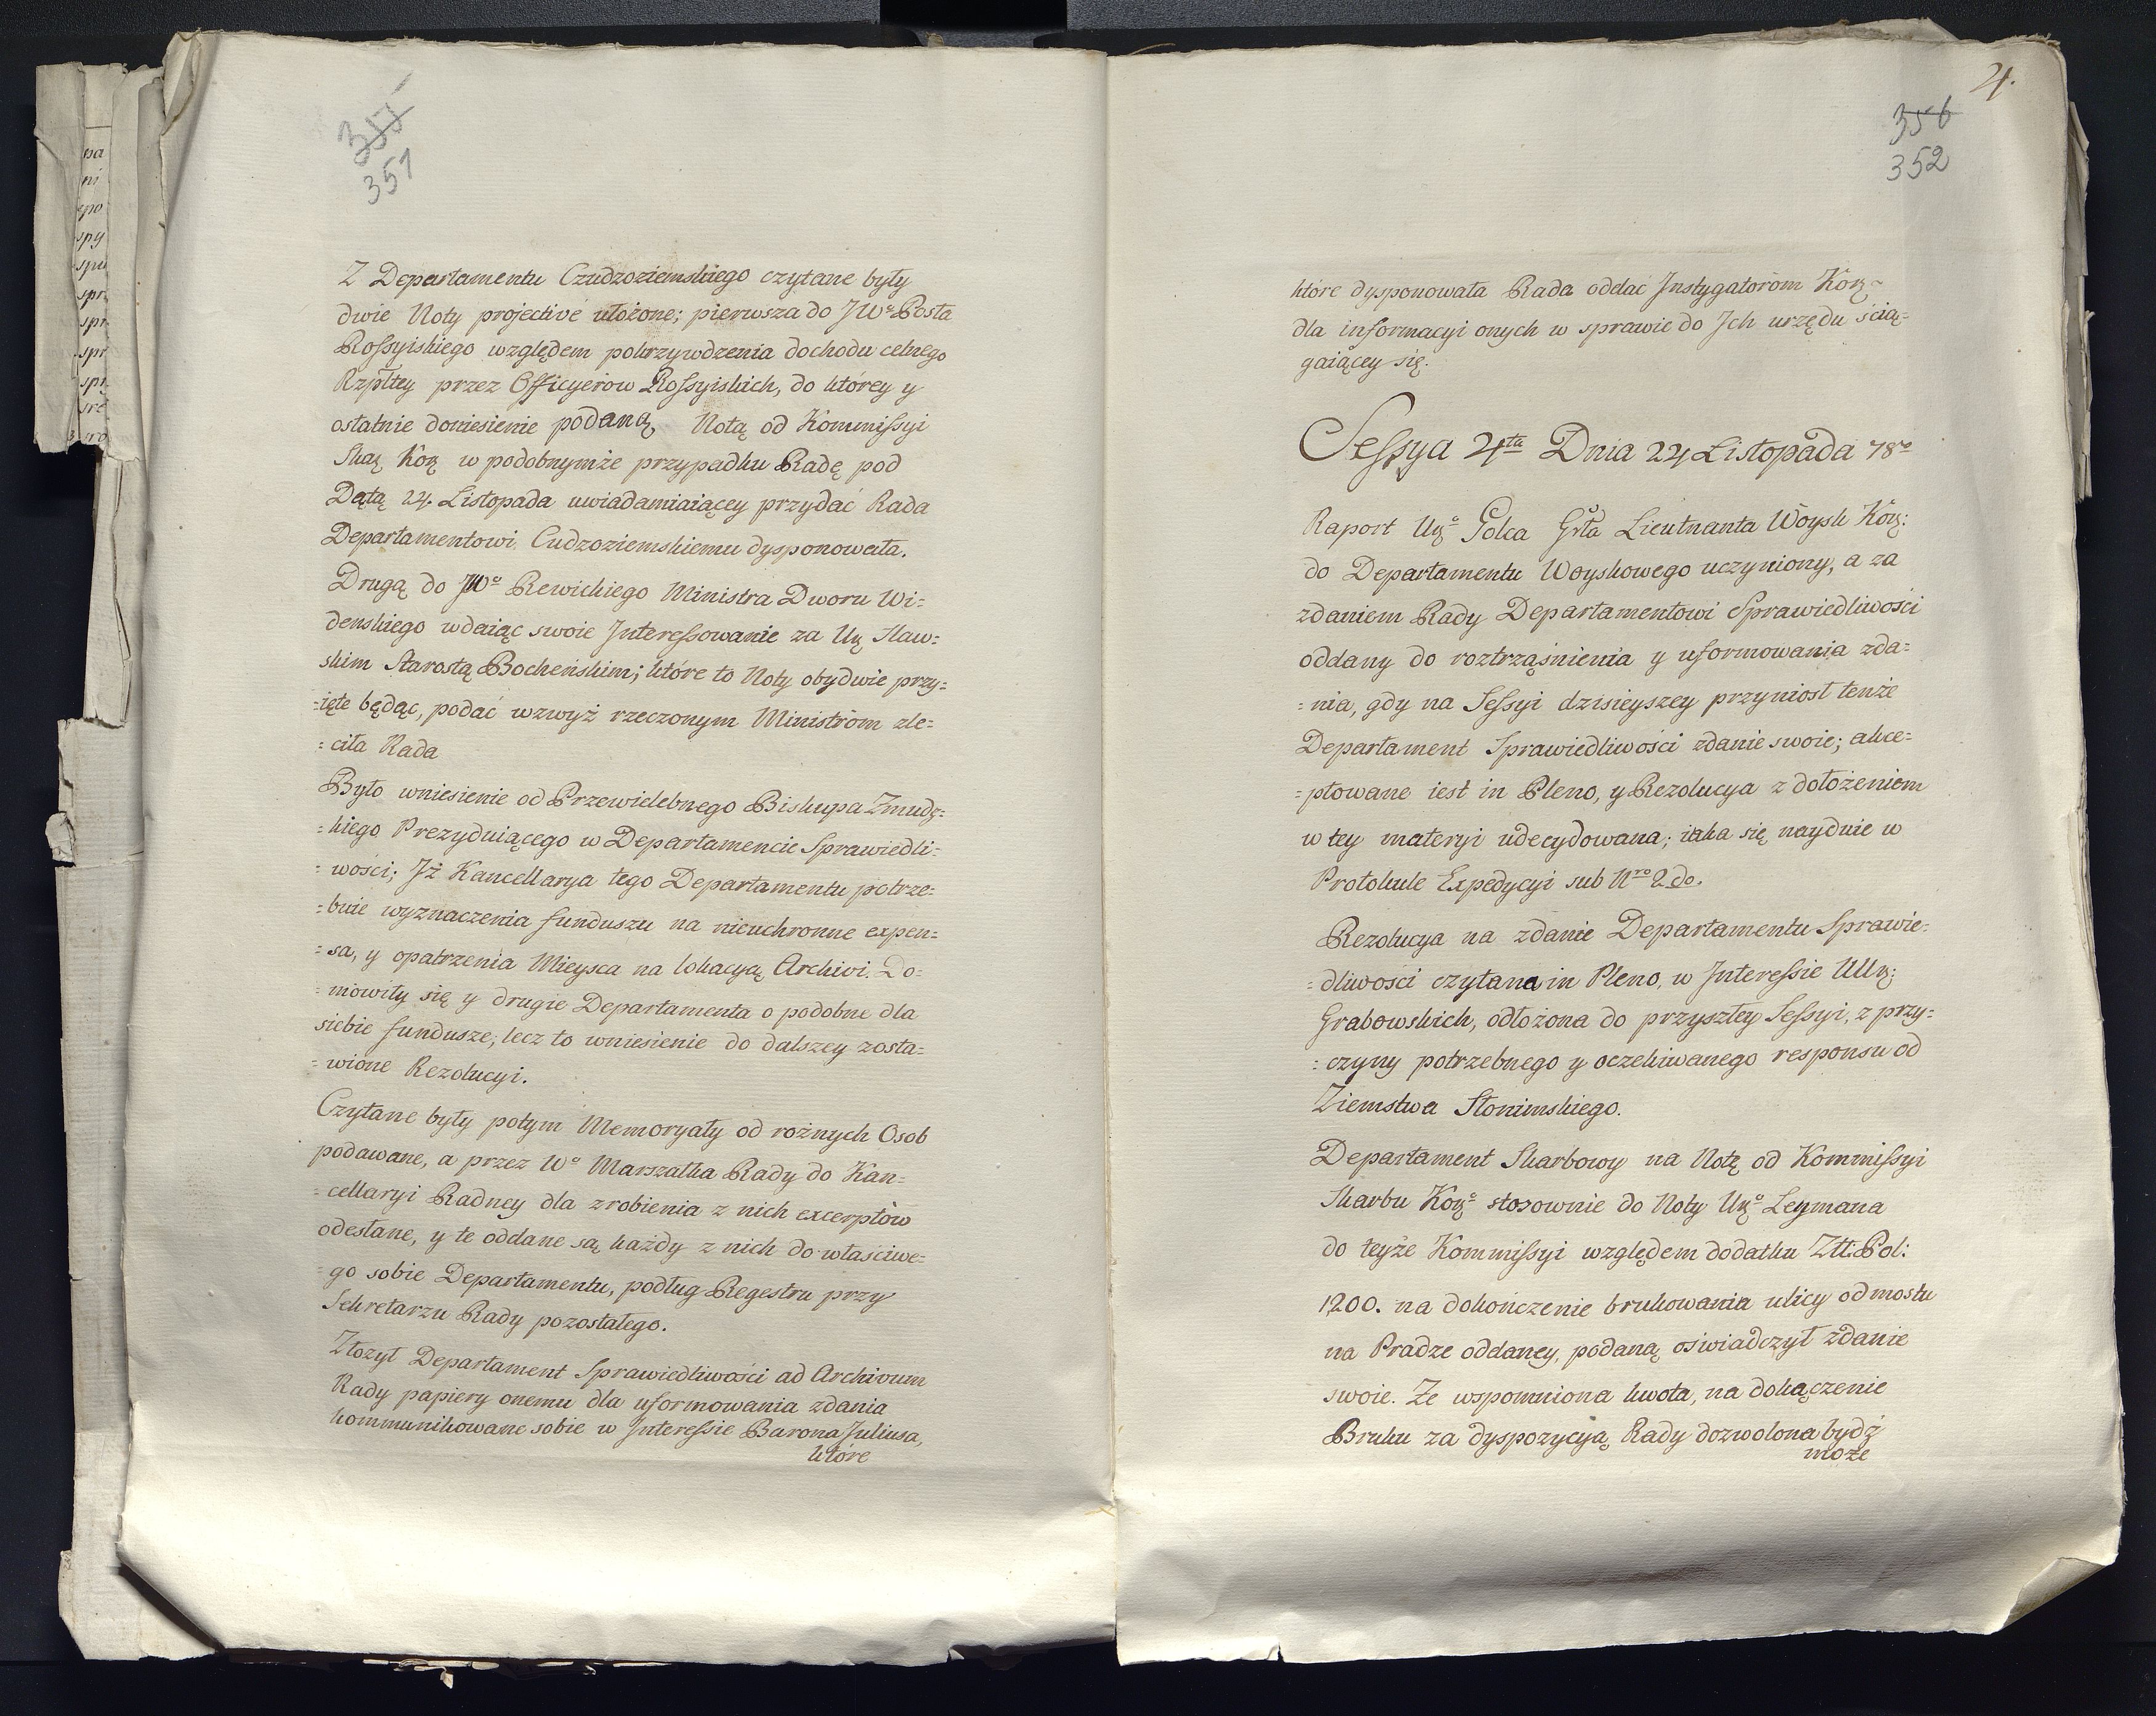 357
351
Z Departamentu Czudzoziemskiego czytane były
dwie Noty projective ułożone; pierwsza do JWo Posła
Rossyiskiego względem pokrzywdzenia dochodu celnego
Rzpltey przez Officyerow Rossyiskich, do którey y
ostatnie doniesienie podaną Notą od Kommissyi
Skar Kor w podobnymże przypadku Radę pod
Datą 24. Listopada uwiadamiaiącey przydać Rada
Departamentowi Cudzoziemskiemu dysponowała.
Drugą do JWo Rewickiego Ministra Dworu Wi=
denskiego wdaiąc swoie Interessowanie za Ur Sław=
skim Starostą Bocheńskim; które to Noty obydwie przy=
=ięte będąc, podać wzwyż rzeczonym Ministrom zle=
=ciła Rada
Było wniesienie od Przewielebnego Biskupa Zmudz=
=kiego Prezyduiącego w Departamencie Sprawiedli=
=wości; Jż Kancellarya tego Departamentu potrze=
=buie wyznaczenia funduszu na nieuchronne expen=
=sa, y opatrzenia Mieysca na lokacyą Archivi. Do=
=mowiły się y drugie Departamenta o podobne dla
siebie fundusze; lecz to wniesienie do dalszey zosta=
=wione Rezolucyi.
Czytane były potym Memoryały od rożnych Osob
podawane, a przez Wo Marszałka Rady do Kan=
=cellaryi Radney dla zrobienia z nich excerptów
odesłane, y te oddane są każdy z nich do właściwe=
=go sobie Departamentu, podług Regestru przy
Sekretarzu Rady pozostałego.
Złozył Departament Sprawiedliwości ad Archivum
Rady papiery onemu dla uformowania zdania
kommunikowane sobie w Interessie Barona Juliusa,
które
4.
356
352
które dysponowała Rada oddać Instygatorom Kor
dla informacyi onych w sprawie do Jch urzędu ścią=
gaiącey się.
Sessya 4ta Dnia 24 Listopada 78o
Raport Uro Golca Grła Lieutnanta Woysk Kor:
do Departamentu Woyskowego uczyniony, a za
zdaniem Rady Departamentowi Sprawiedliwości
oddany do roztrząśnienia y uformowania zda=
=nia, gdy na Sessyi dzisieyszey przyniosł tenże
Departament Sprawiedliwości zdanie swoie; akce=
=ptowane iest in Pleno, y Rezolucya z dołożeniem
w tey materyi udecydowana; iaka się nayduie w
Protokule Expedycyi sub Nro 2do.
Rezolucya na zdanie Departamentu Sprawie=
=dliwości czytana in Pleno, w Interessie UUr:
Grabowskich, odłożona do przyszłey Sessyi, z przy=
=czyny potrzebnego y oczekiwanego responsu od
Ziemstwa Słonimskiego.
Departament Skarbowy na Notę od Kommissyi
Skarbu Koro stosownie do Noty Uro Leymana
do teyże Kommissyi względem dodatku Złł: Pol:
1200. na dokończenie brukowania ulicy od mostu
na Pradze oddaney, podaną oświadczył zdanie
swoie. Ze wspomniona kwota, na dokączenie
Bruku za dyspozycyią Rady dozwolona bydź
może